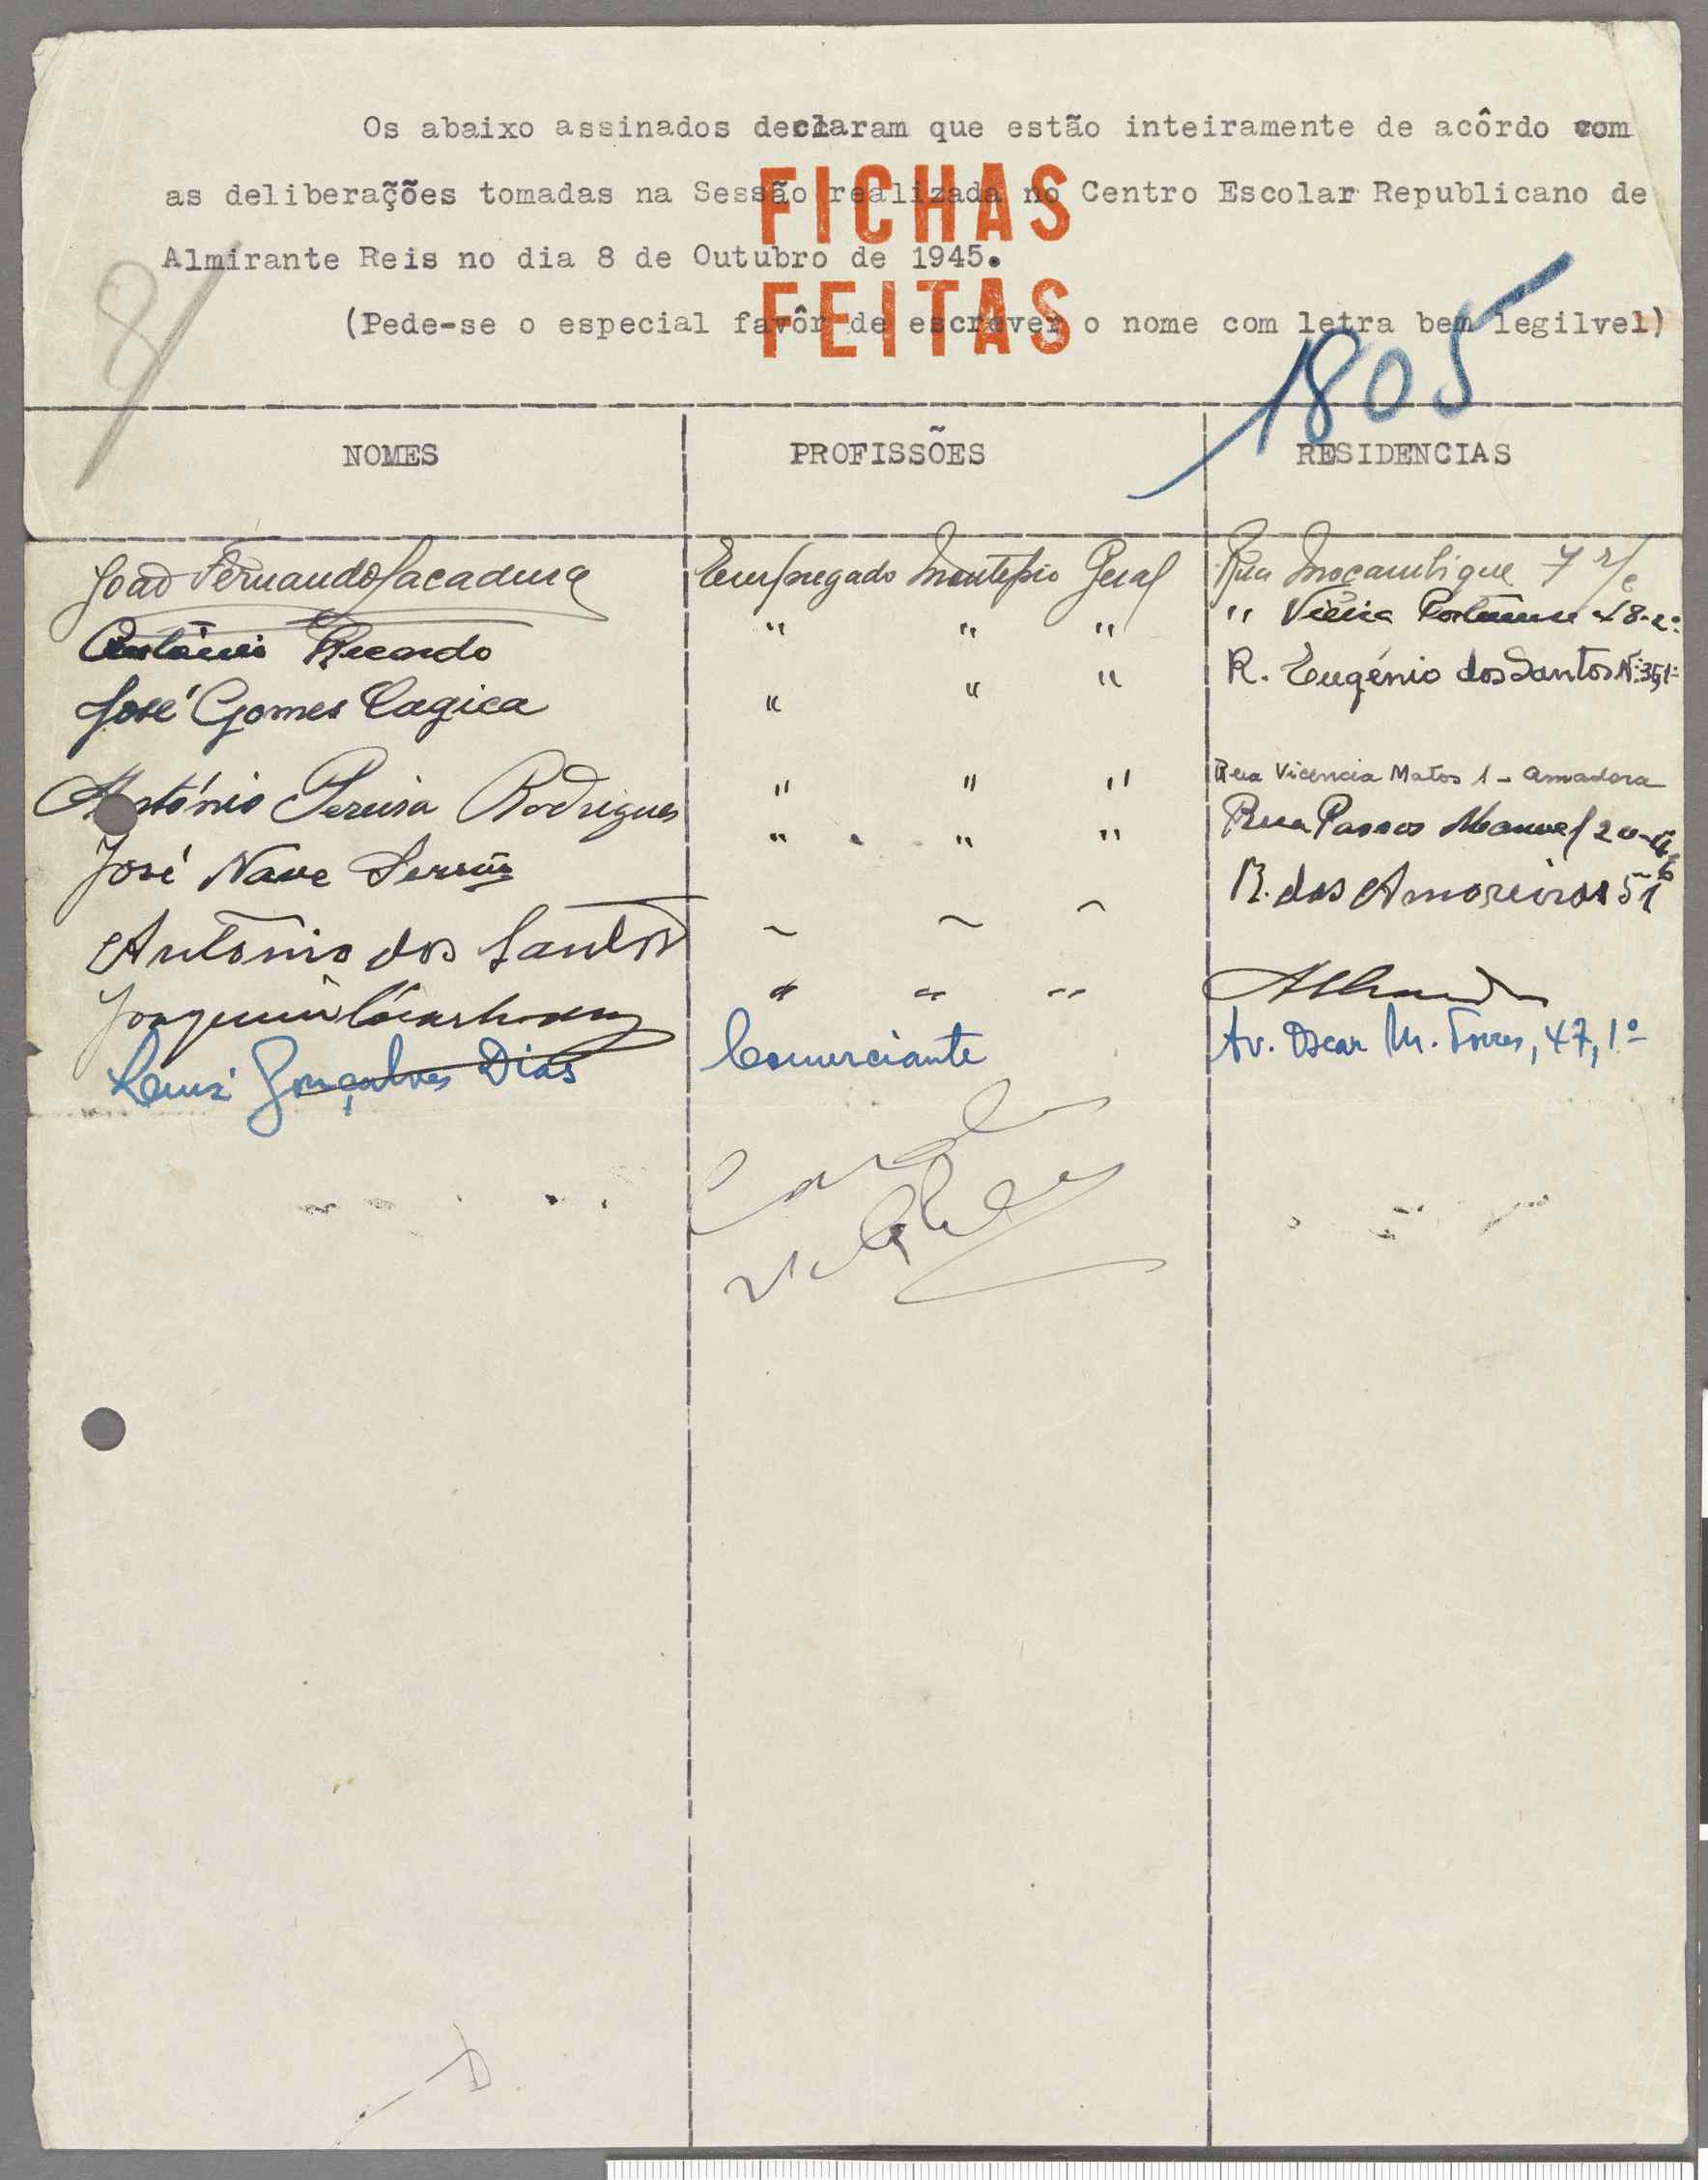 Os abaixo assinados declaram que estão inteiramente de acôrdo com
as deliberações tomadas na Sessão realizada no Centro Escolar Republicano de
Almirante Reis no dia 8 de Outubro de 1945.
(Pede-se o especial favôr de escrever o nome com letra bem legilvel)
FICHAS
FEITAS
1805
NOMES PROFISSÕES RESIDENCIAS
João Fernando Sacadura Empregado Montepio Geral Rua Moçambique 7 r/c
António Ricardo " " " " Vieira Portuense 48-2º
José Gomes Cagica " " " R. Eugénio dos Santos Nº 35,1º
António Pereira Rodrigues " " " Rua Vicencia Matos 1 - Amadora
José Nave " " " Rua Passos Manuel 20
António dos Santos R. das Amoreiras 51
Joaquim " " "
Luiz Gonçalves Dias Comerciante Av. Oscar M. Torres, 47, 1º